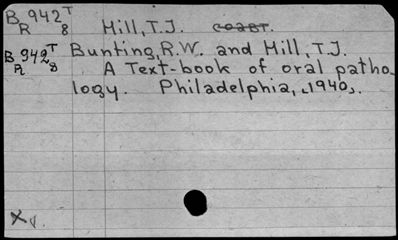 B 942 T
R 8
Hill, T.J. coaut.
B 942 T
R 8
Bunting, R.W. and Hill, T.J.
A Text-book of oral patho-
logy. Philadelphia, 1940.